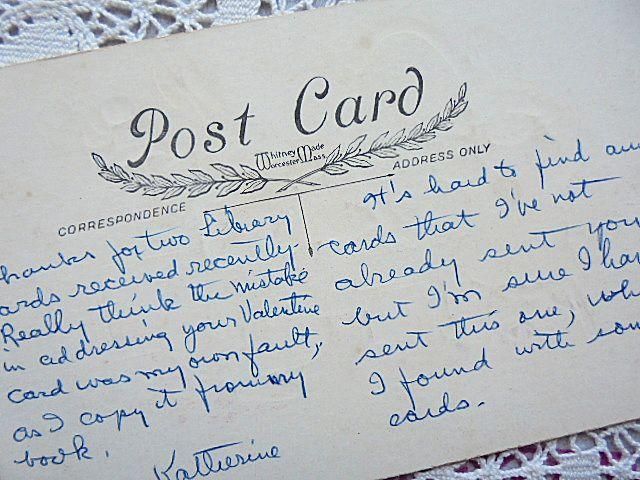 Post Card
Whitney Made
Worcester Mass
CORRESPONDENCE
ADDRESS ONLY
hanks for two Library
ards received recently.
Really think the mistake
in addressing your Valentine
card was my own fault,
as I copy it from my
book.
Katherine
It's hard to find
cards that I've not
already sent you
but I'm sure I
sent this one,
I found with
cards.